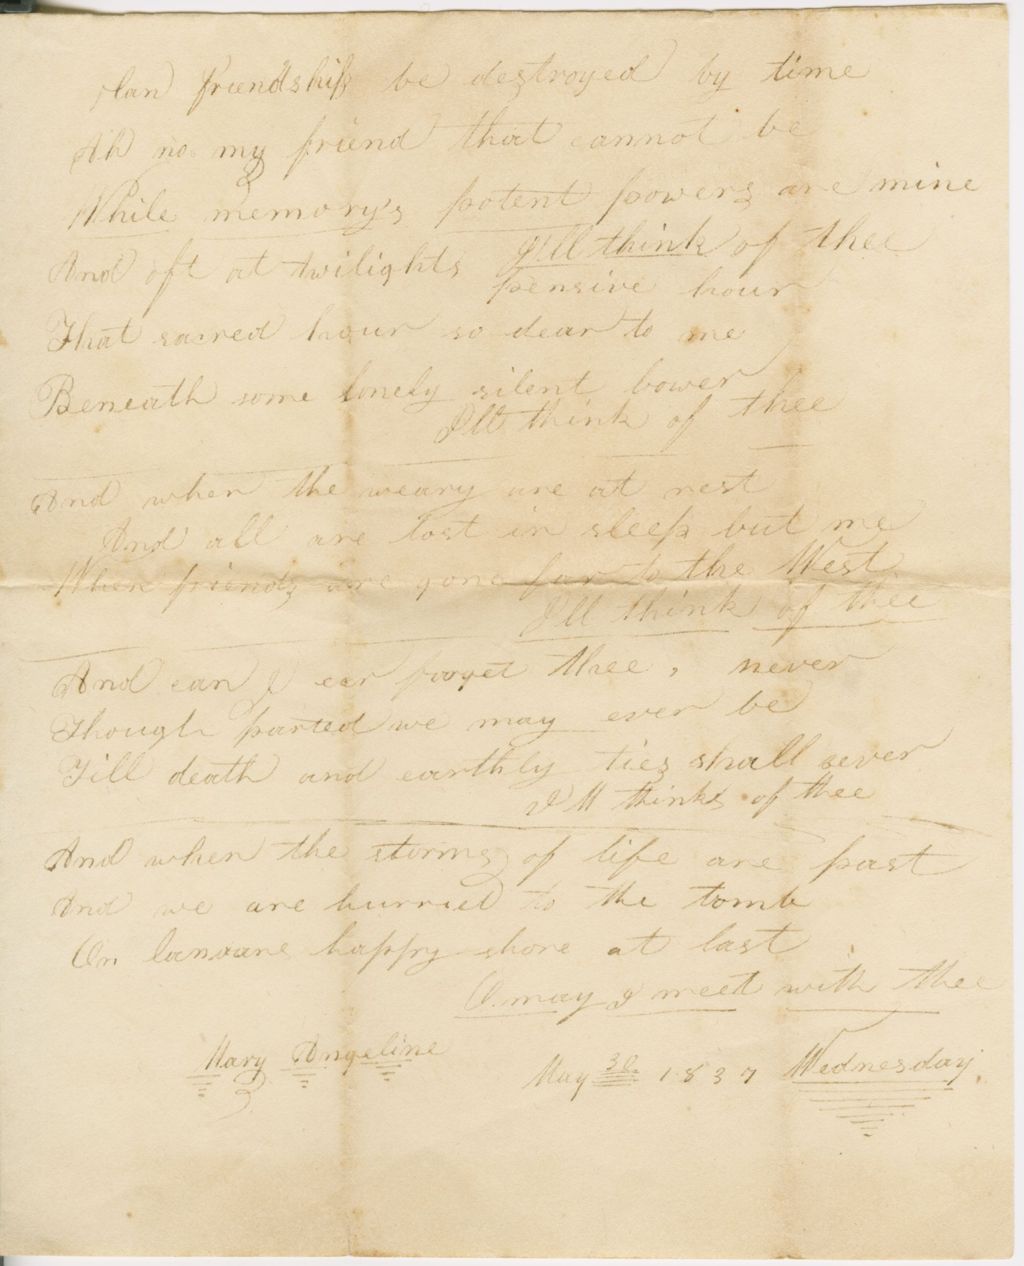 Can friendship be destroyed by time
Ah no my friend that cannot be
While memory's potent powers are mine
I'll think of thee
And oft at twilights pensive hour
That sacred hour so dear to me
Beneath some lonely silent bower
I'll think of thee
And when the weary are at rest
And all are lost in sleep but me
When friends are gone far to the West
I'll think of thee
And can I ear forget thee, never
Though parted we may ever be
Till death and earthly ties shall sever
I'll think of thee
And when the storms of life are past
And we are hurried to the tomb
On Canaans happy shore at last
O may I meet with thee
Mary Angeline May 30 1837 Wednesday